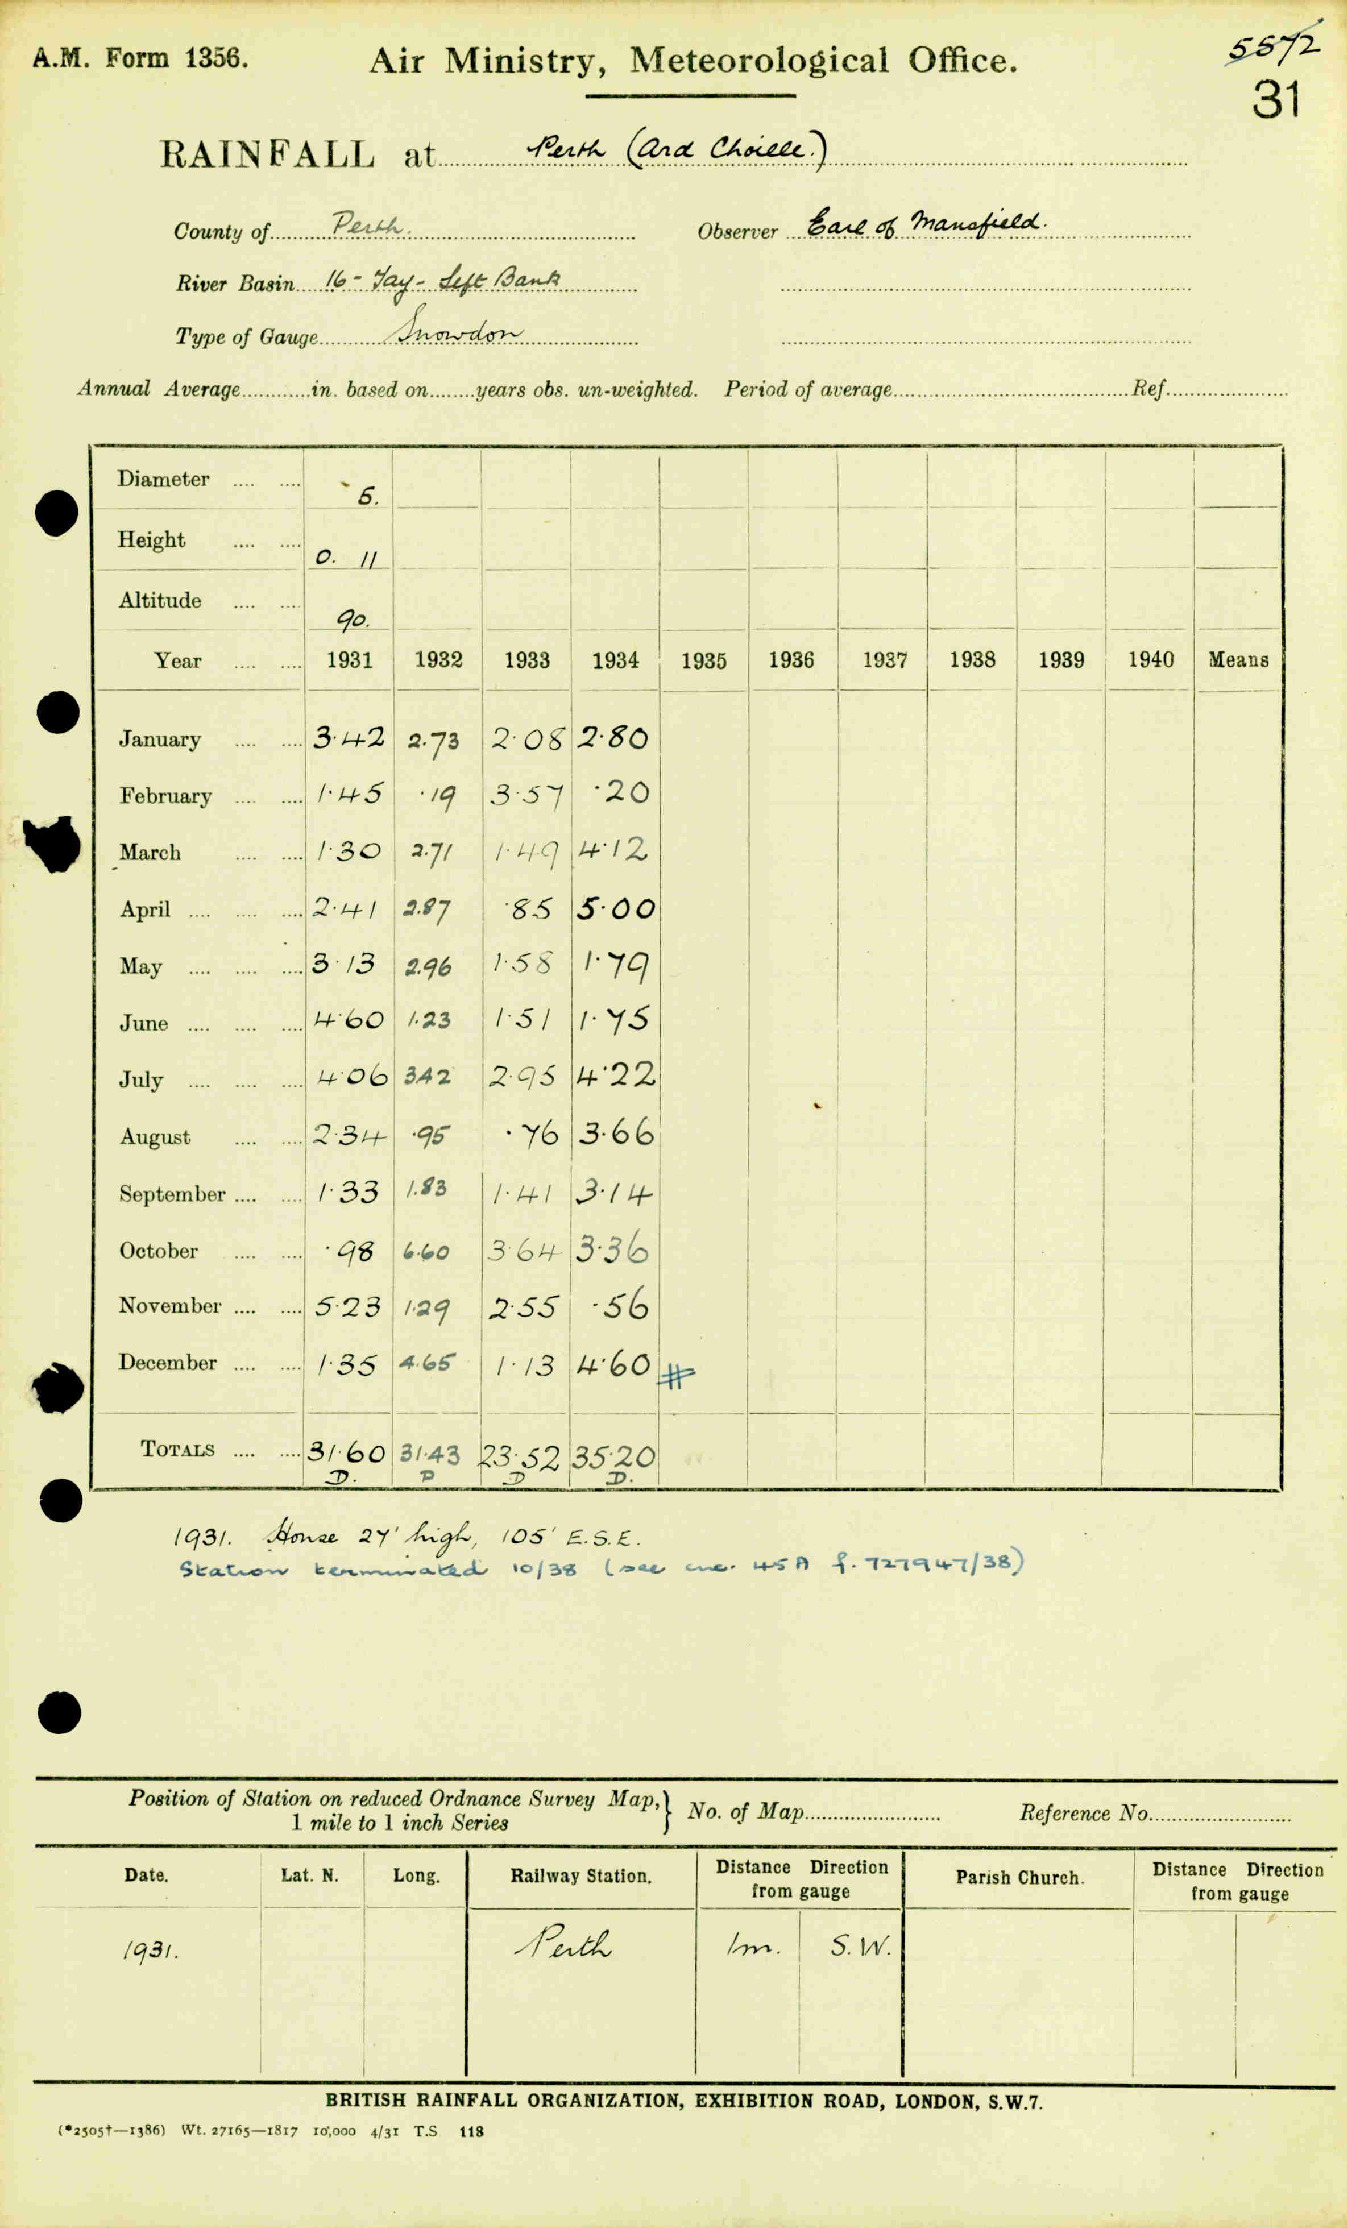 A.M. Form 1356.
Air Ministry, Meteorological Office.
5572
31
RAINFALL at Perth (Ard Choille.)
County of Perth. Observer Earl of Mansfield.
River Basin 16 - Tay - Left Bank
Type of Gauge Snowdon
Annual Average in. based on years obs. un-weighted. Period of average Ref.
Diameter 5.
Height 0. 11
Altitude 90.
Year 1931 1932 1933 1934 1935 1936 1937 1938 1939 1940 Means
January 3.42 2.73 2.08 2.80
February 1.45 .19 3.57 .20
March 1.30 2.71 1.49 4.12
April 2.41 2.87 .85 5.00
May 3.13 2.96 1.58 1.79
June 4.60 1.23 1.51 1.75
July 4.06 3.42 2.95 4.22
August 2.34 .95 .76 3.66
September 1.33 1.83 1.41 3.14
October .98 6.60 3.64 3.36
November 5.23 1.29 2.55 .56
December 1.35 4.65 1.13 4.60 #
TOTALS 31.60 31.43 23.52 35.20
D. D D D.
1931. House 27' high, 105' E.S.E.
Station terminated 10/38 (see enc. 45A f. 727947/38)
Position of Station on reduced Ordnance Survey Map, } No. of Map Reference No.
1 mile to 1 inch Series
Date. Lat. N. Long. Railway Station. Distance Direction from gauge Parish Church. Distance Direction from gauge
1931. Perth 1m. S.W.
BRITISH RAINFALL ORGANIZATION, EXHIBITION ROAD, LONDON, S.W.7.
(*2505†—1386) Wt. 27165—1817 10,000 4/31 T.S 118